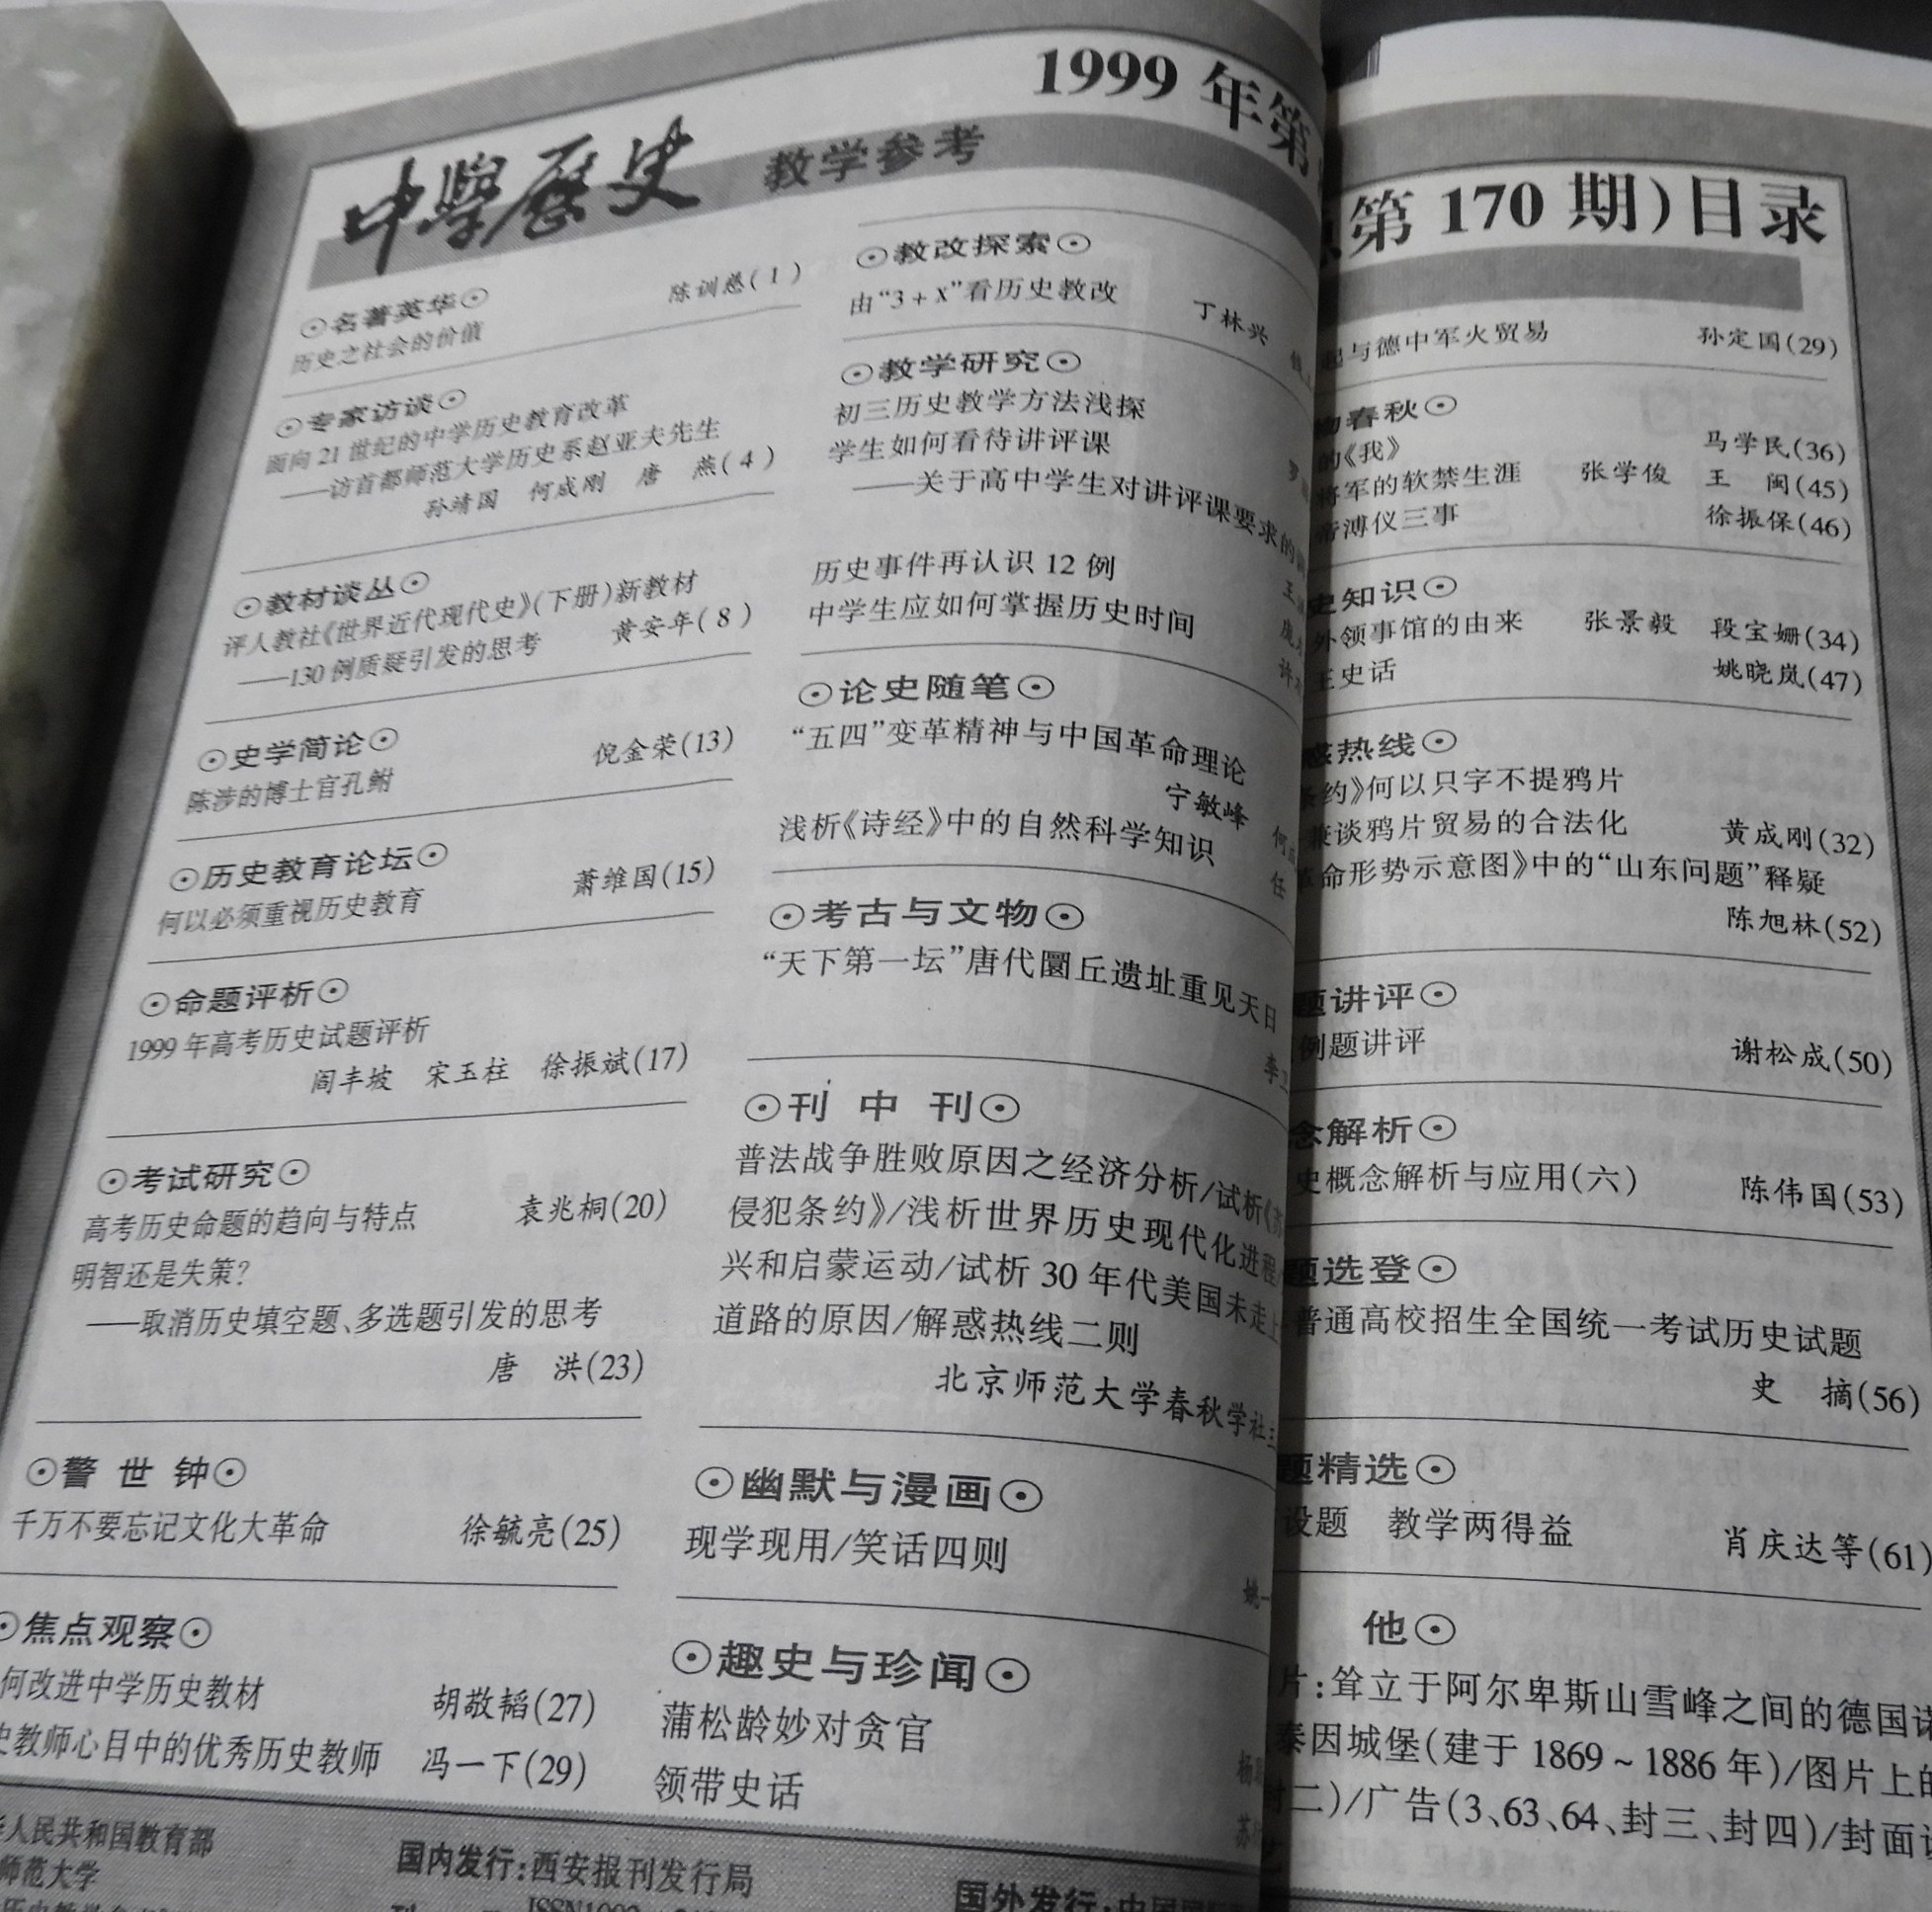 中學歷史 教学参考
1999 年第
⊙名著英华⊙
历史之社会的价值 陈训慈(1)
⊙专家访谈⊙
面向 21 世纪的中学历史教育改革
——访首都师范大学历史系赵亚夫先生
孙靖国 何成刚 唐 燕(4)
⊙教材谈丛⊙
评人教社《世界近代现代史》(下册)新教材
——130 例质疑引发的思考 黄安年(8)
⊙史学简论⊙
陈涉的博士官孔鲋 倪金荣(13)
⊙历史教育论坛⊙
何以必须重视历史教育 萧维国(15)
⊙命题评析⊙
1999 年高考历史试题评析
阎丰坡 宋玉柱 徐振斌(17)
⊙考试研究⊙
高考历史命题的趋向与特点 袁兆桐(20)
明智还是失策?
——取消历史填空题、多选题引发的思考
唐 洪(23)
⊙警 世 钟⊙
千万不要忘记文化大革命 徐毓亮(25)
⊙焦点观察⊙
何改进中学历史教材 胡敬韬(27)
史教师心目中的优秀历史教师 冯一下(29)
⊙教改探索⊙
由“3+X”看历史教改
丁林兴
⊙教学研究⊙
初三历史教学方法浅探
学生如何看待讲评课
——关于高中学生对讲评课要求的
历史事件再认识 12 例
中学生应如何掌握历史时间
⊙论史随笔⊙
“五四”变革精神与中国革命理论
宁敏峰
浅析《诗经》中的自然科学知识
任
⊙考古与文物⊙
“天下第一坛”唐代圜丘遗址重见天日
李
⊙刊 中 刊⊙
普法战争胜败原因之经济分析/试析《苏
侵犯条约》/浅析世界历史现代化进程
兴和启蒙运动/试析 30 年代美国未走上
道路的原因/解惑热线二则
北京师范大学春秋学社
⊙幽默与漫画⊙
现学现用/笑话四则
姚
⊙趣史与珍闻⊙
蒲松龄妙对贪官
杨
领带史话
苏
人民共和国教育部
师范大学
国内发行:西安报刊发行局
国外发行:中国国
第 170 期)目录
起与德中军火贸易 孙定国(29)
春秋⊙
的《我》 马学民(36)
将军的软禁生涯 张学俊 王 闽(45)
帝溥仪三事 徐振保(46)
史知识⊙
外领事馆的由来 张景毅 段宝姗(34)
王史话 姚晓岚(47)
惑热线⊙
条约》何以只字不提鸦片
兼谈鸦片贸易的合法化 黄成刚(32)
命形势示意图》中的“山东问题”释疑
陈旭林(52)
题讲评⊙
例题讲评 谢松成(50)
念解析⊙
史概念解析与应用(六) 陈伟国(53)
题选登⊙
普通高校招生全国统一考试历史试题
史 摘(56)
题精选⊙
设题 教学两得益 肖庆达等(61)
他⊙
片:耸立于阿尔卑斯山雪峰之间的德国诺
泰因城堡(建于 1869~1886 年)/图片上的
封二)/广告(3、63、64、封三、封四)/封面设